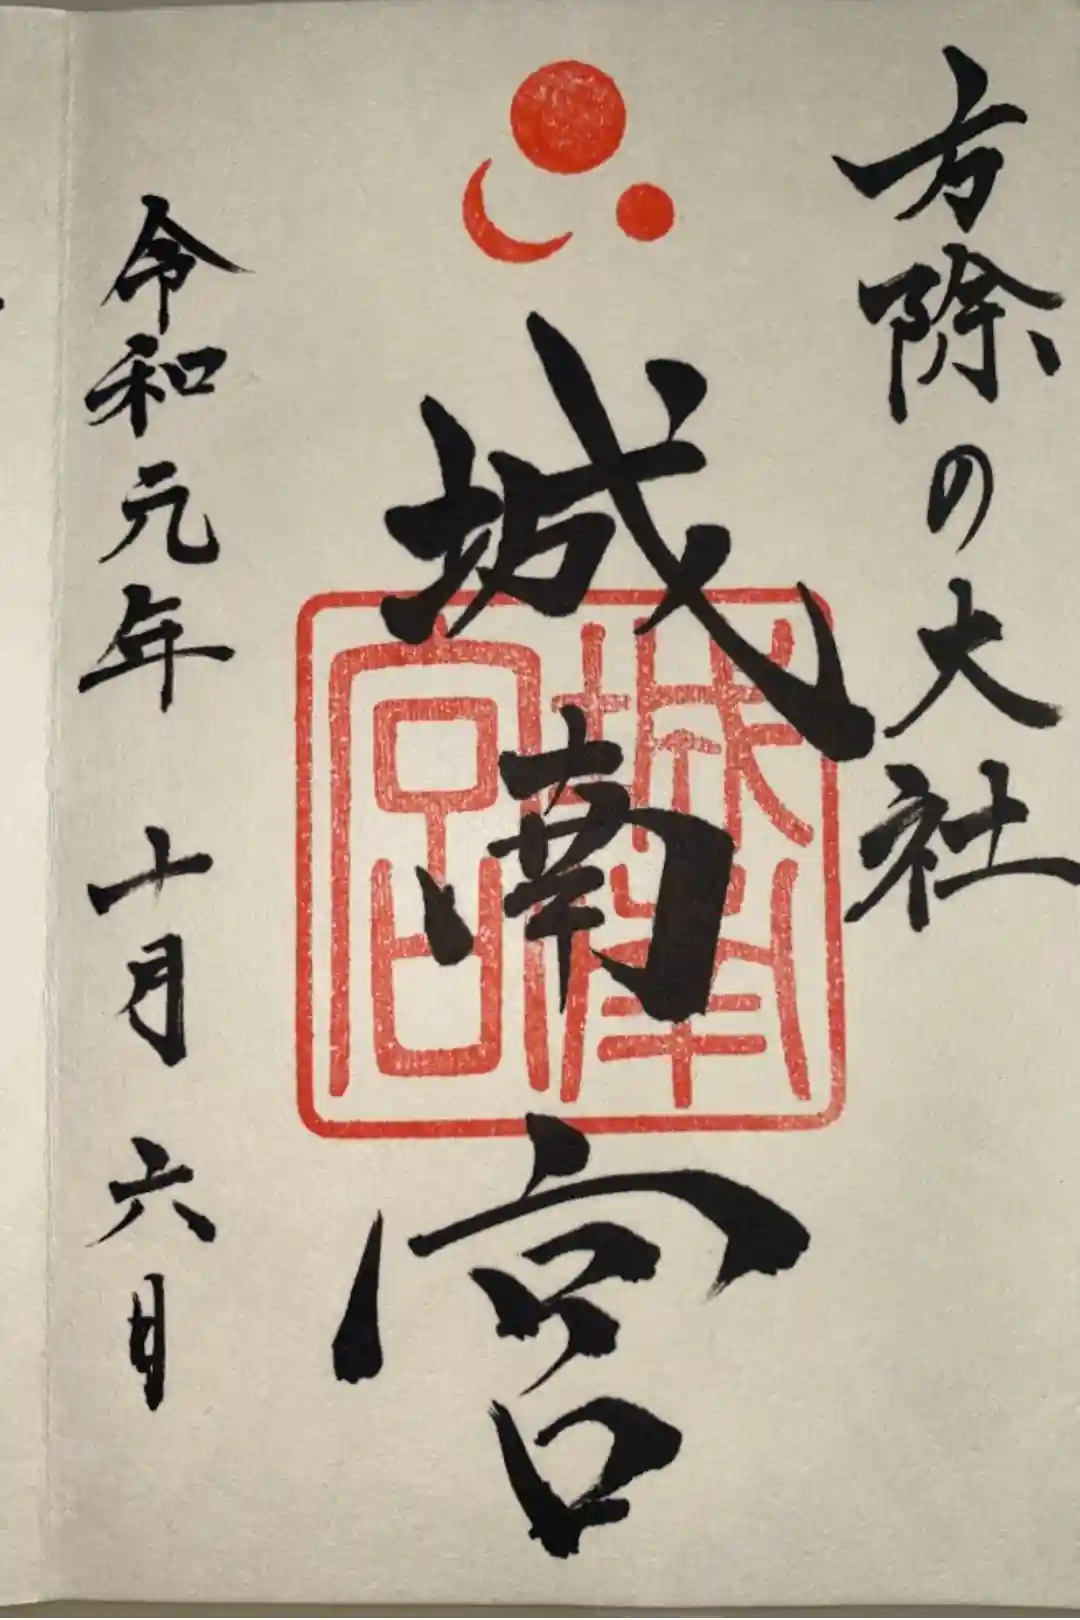 方除の大社
城南宮
城南宮
令和元年 十月 六日